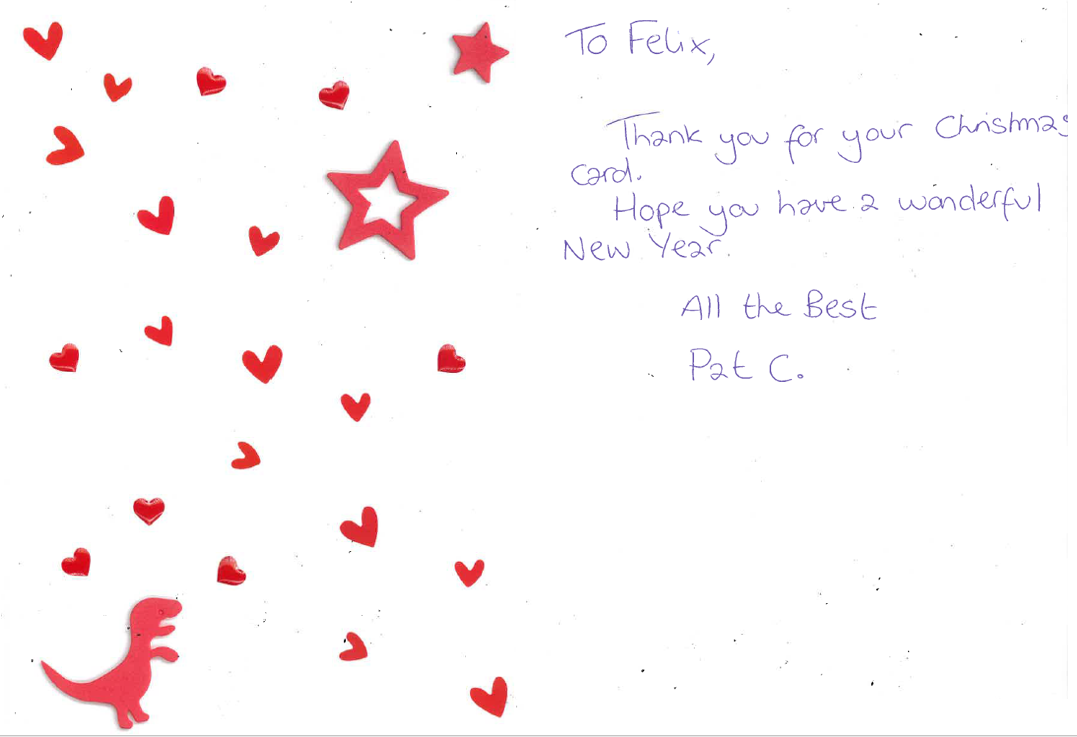 To Felix,
Thank you for your Christmas
card.
Hope you have a wonderful
New Year.
All the Best
Pat C.